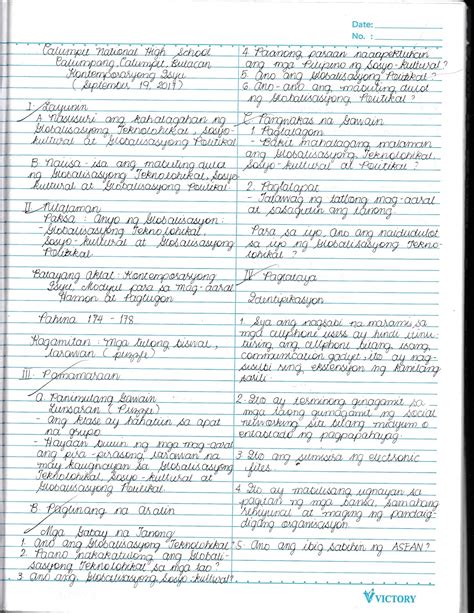 Date:
No. :
Calumpit National High School
Calumpang, Calumpit, Bulacan
Kontemporasyong Isyu
(September 19, 2019)
I. Layunin
A. Nasusuri ang kahalagahan ng
Globalisasyong Teknolohikal, Sosyo-
kultural at Globalisasyong Politikal
B. Naiisa-isa ang mabuting dulot
ng Globalisasyong Teknolohikal, Sosyo-
kultural at Globalisasyong Politikal
II. Nilalaman
Paksa: Anyo ng Globalisasyon:
- Globalisasyong Teknolohikal,
Sosyo-kultural at Globalisasyong
Politikal
Batayang Aklat: Kontemporasyong
Isyu Modyul para sa mag-aaral
Hamon at Pagtugon
Pahina 174 - 178
Kagamitan: mga tulong biswal,
larawan (puzzle)
III. Pamamaraan
A. Panimulang Gawain
Lunsaran (Puzzle)
- Ang klase ay hahatiin sa apat
na grupo.
- Hayaan buuin ng mga mag-aaral
ang pira-pirasong larawan na
may kaugnayan sa Globalisasyong
Teknolohikal, Sosyo-kultural at
Globalisasyong Politikal
B. Paglinang na Aralin
Mga Gabay na Tanong
1. Ano ang Globalisasyong Teknolohikal?
2. Paano Nakakatulong ang Globali-
sasyong Teknolohikal sa mga tao?
3. Ano ang Globalisasyong Sosyo-kultural?
4. Paanong paraan naapektuhan
ang mga Pilipino ng Sosyo-kultural?
5. Ano ang Globalisasyong Politikal?
6. Ano-ano ang mabuting dulot
ng Globalisasyong Politikal?
C. Pangwakas na Gawain
1. Paglalagom
- Bakit mahalagang malaman
ang Globalisasyong Teknolohikal,
Sosyo-kultural at Politikal?
2. Paglalapat
- Tatawag ng tatlong mag-aaral
at sasagutin ang tanong.
Para sa iyo, Ano ang naidudulot
sa iyo ng Globalisasyong Tekno-
lohikal?
IV Pagtataya
Identipikasyon
1. Sya ang nagsabi na marami sa
mga cellphone users ay hindi itinu-
turing ang cellphone bilang isang
communication gadget, ito ay nag-
sisilbi ring ekstensyon ng kanilang
sarili.
2. Ito ay terminong ginagamit sa
mga taong gumagamit ng social
networking site bilang midyum o
entablado ng pagpapahayag.
3. Ito ang sumisira ng electronic
files.
4. Ito ay mabilisang ugnayan sa
pagitan ng mga bansa, samahang
rehiyunal at maging ng pandaig-
digang organisasyon.
5. Ano ang ibig sabihin ng ASEAN?
VICTORY